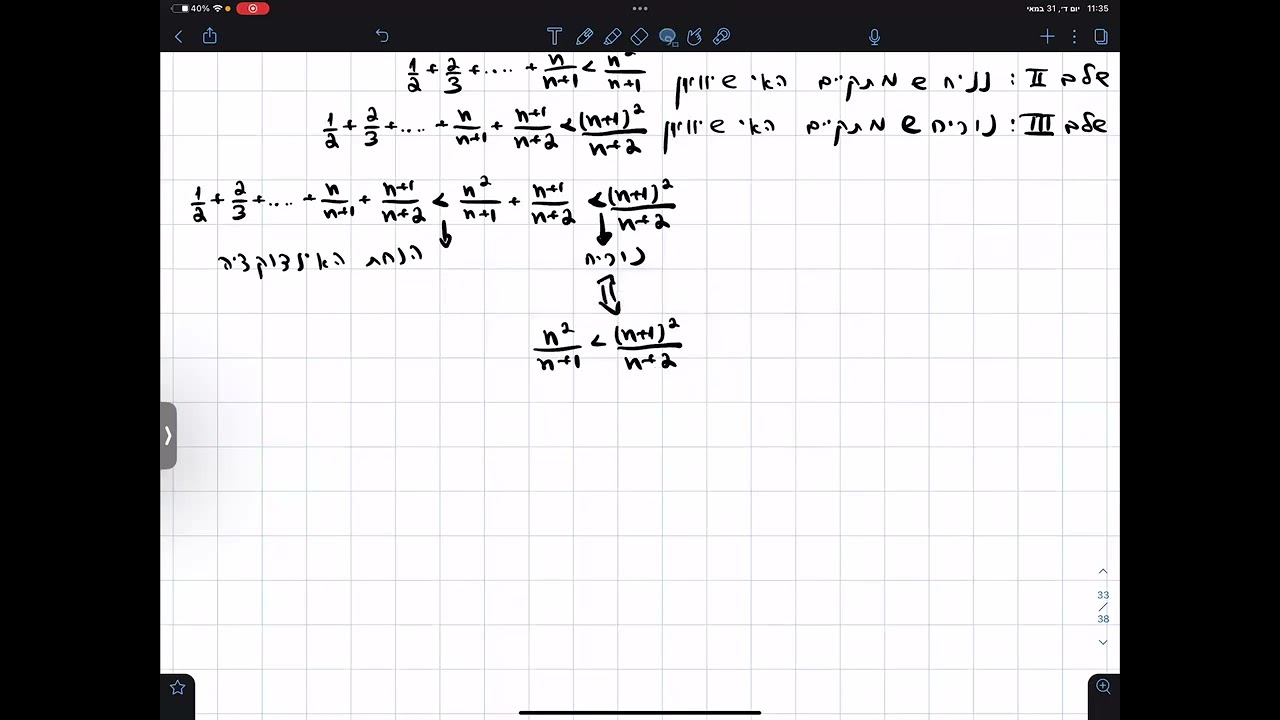 40%
11:35 יום ד׳, 31 במאי
שלב II: נניח ש מתקיים האי שיוויון 1/2 + 2/3 + .... + n/n+1 < n²/n+1
שלב III: נוכיח ש מתקיים האי שיוויון 1/2 + 2/3 + .... + n/n+1 + n+1/n+2 < (n+1)²/n+2
1/2 + 2/3 + .... + n/n+1 + n+1/n+2 < n²/n+1 + n+1/n+2 < (n+1)²/n+2
הנחת האינדוקציה
נוכיח
n²/n+1 < (n+1)²/n+2
33
38